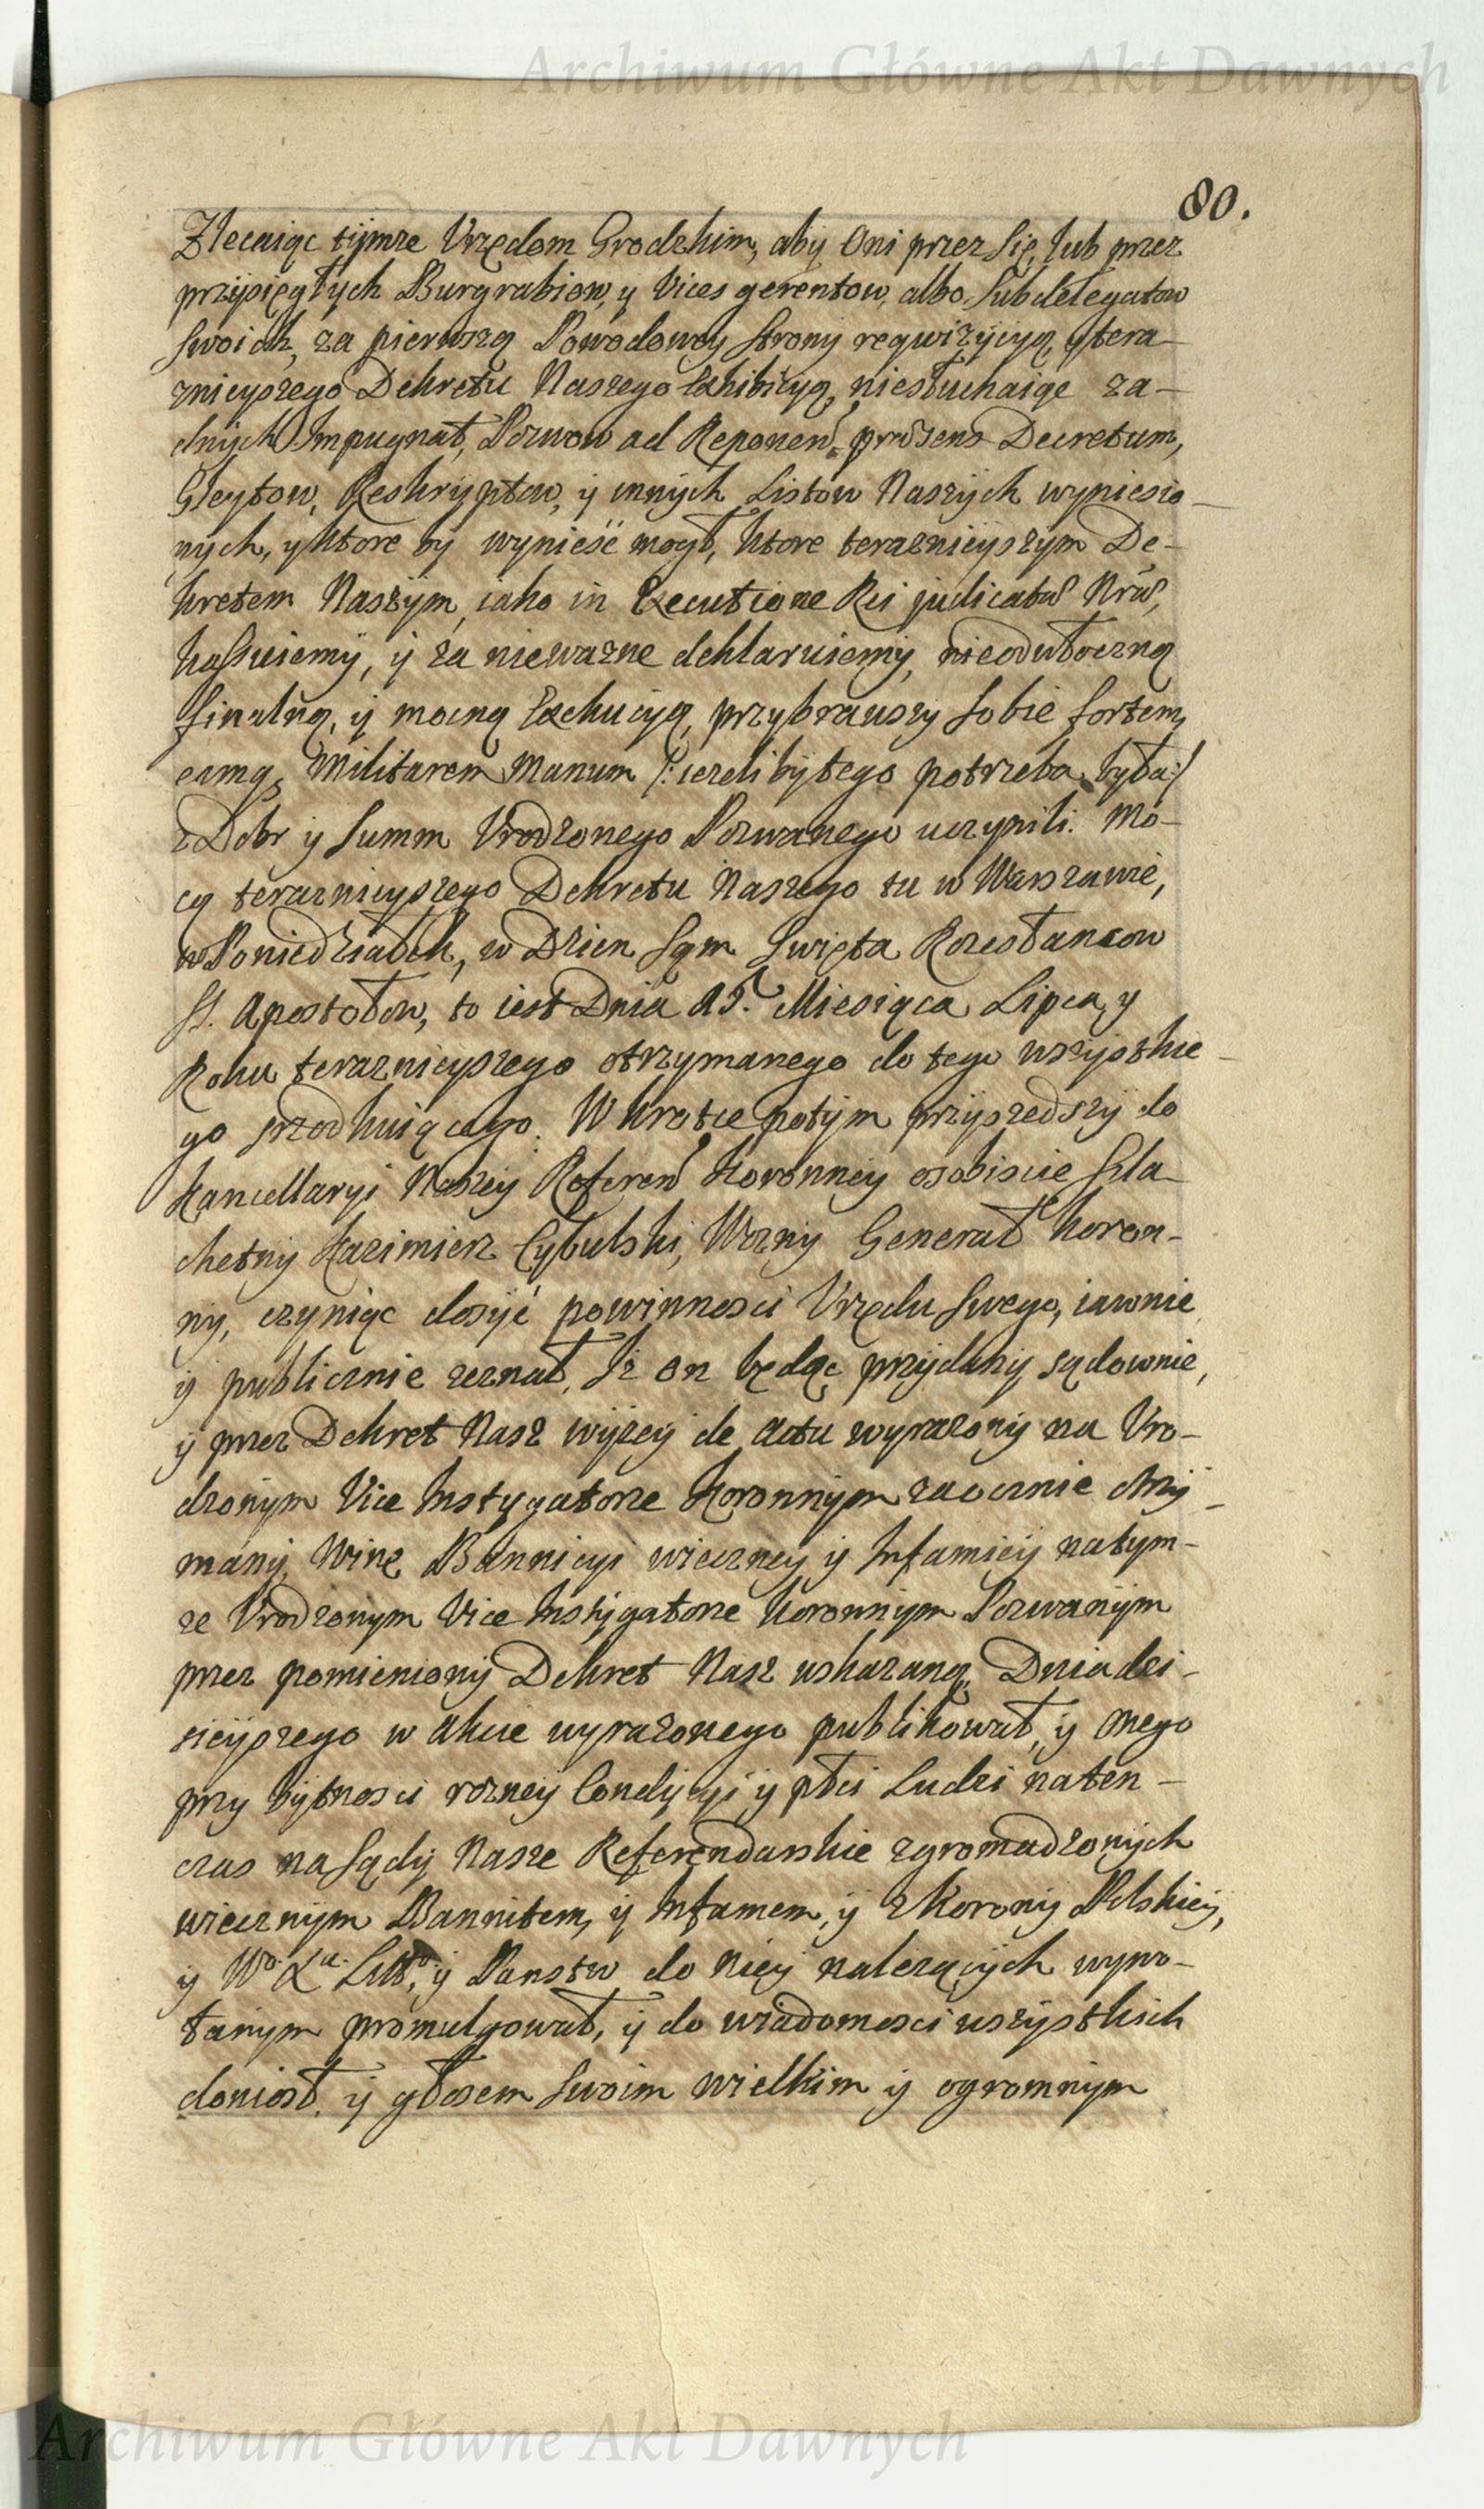 Archiwum Główne Akt Dawnych
80.
Zlecaiąc tymze Vrzędom Grodzkim, aby Oni przez się, lub przez
przysięgłych Burgrabiow, y Vices gerentow, albo Subdelegatow
Swoich, za pierwszą Powodowey Strony reqwizycyą, y tera-
znieyszego Dekretu Naszego Exhibicyą, niesłuchaiąc za-
dnych Impugnat, Pozwow ad Reponen, præsens Decretum,
Gleytow, Reskryptow, y innych Listow Naszych wyniesio-
nych, y ktore by wynieść mogł, ktore teraznieyszym De-
kretem Naszym, iako in Executione Rei judicatæ Nræ,
kassuiemy, y za niewazne deklaruiemy, nieodwłoczną
finalną, y mocną Exekucyą, przybrawszy sobie fortem,
eamq, Militarem Manum /: iezeliby tego potrzeba była :/
z Dobr y Summ Vrodzonego Pozwanego uczynili. Mo-
cą teraznieyszego Dekretu Naszego tu w Warszawie,
w Poniedziałek, w Dzien Sąm Swięta Rozesłancow
SS. Apostołow, to iest Dnia 15. Miesiąca Lipca, y
Roku teraznieyszego otrzymanego do tego wszystkie-
go srzodkuiącego. Wkrotce potym przyszedszy do
Kancellaryi Naszey Referen Koronney osobiscie Szla-
chetny Kazimierz Cybulski, Wozny Generał Koron-
ny, czyniąc dosyć powinnosci Vrzędu Swego, iawnie,
y publicznie zeznał, Iz on będąc przydany sądownie,
y przez Dekret Nasz wyzey de Actu wyrazony na Vro-
dzonym Vice Instygatorze Koronnym zaocznie otrzy-
many, Winę Bannicyi wieczney y Infamiey natym-
ze Vrodzonym Vice Instygatorze Koronnym Pozwanym
przez pomieniony Dekret Nasz wskazaną, Dnia dzi-
sieyszego w Akcie wyrazonego publikował, y onego
przy bytnosci rozney Condycyi y płci Ludzi naten-
czas na Sądy Nasze Referendarskie zgromadzonych
wiecznym Bannitem, y Infamem, y z Korony Polskiey,
y Wo. Xa. Litto, y Panstw do niey nalezących wywo-
łanym promulgował, y do wiadomosci wszystkich
doniosł, y głosem Swoim wielkim y ogromnym
Archiwum Główne Akt Dawnych